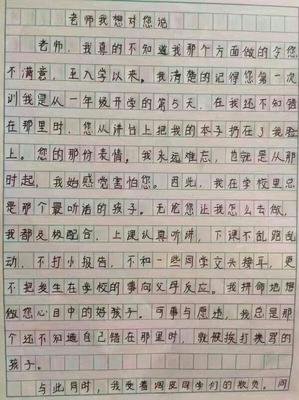 老师我想对您说
老师,我真的不知道我那个方面做的令您
不满意,至入学以来。我清楚的记得您第一次
训我是从一年级开学的第5天,在我还不知错
在那里时,您从讲台上把我的本子扔在了我脸
上。您的那份表情。我永远难忘,也就是从那
时起,我始感觉害怕您。因此,我在学校里总
是那个最听话的孩子。无论您让我怎么去做,
我都及极配合,上课认真听讲,下课不乱跑乱
动,不打小报告,不和一些同学交头接耳,更
不把发生在学校的事向父母反应。我拼命地想
做您心目中的好孩子。可事与愿违,我总是那
个还不知道自己错在那里时,就候挨打挨骂的
孩子。
与此同时,我受着调皮同学们的欺负。同